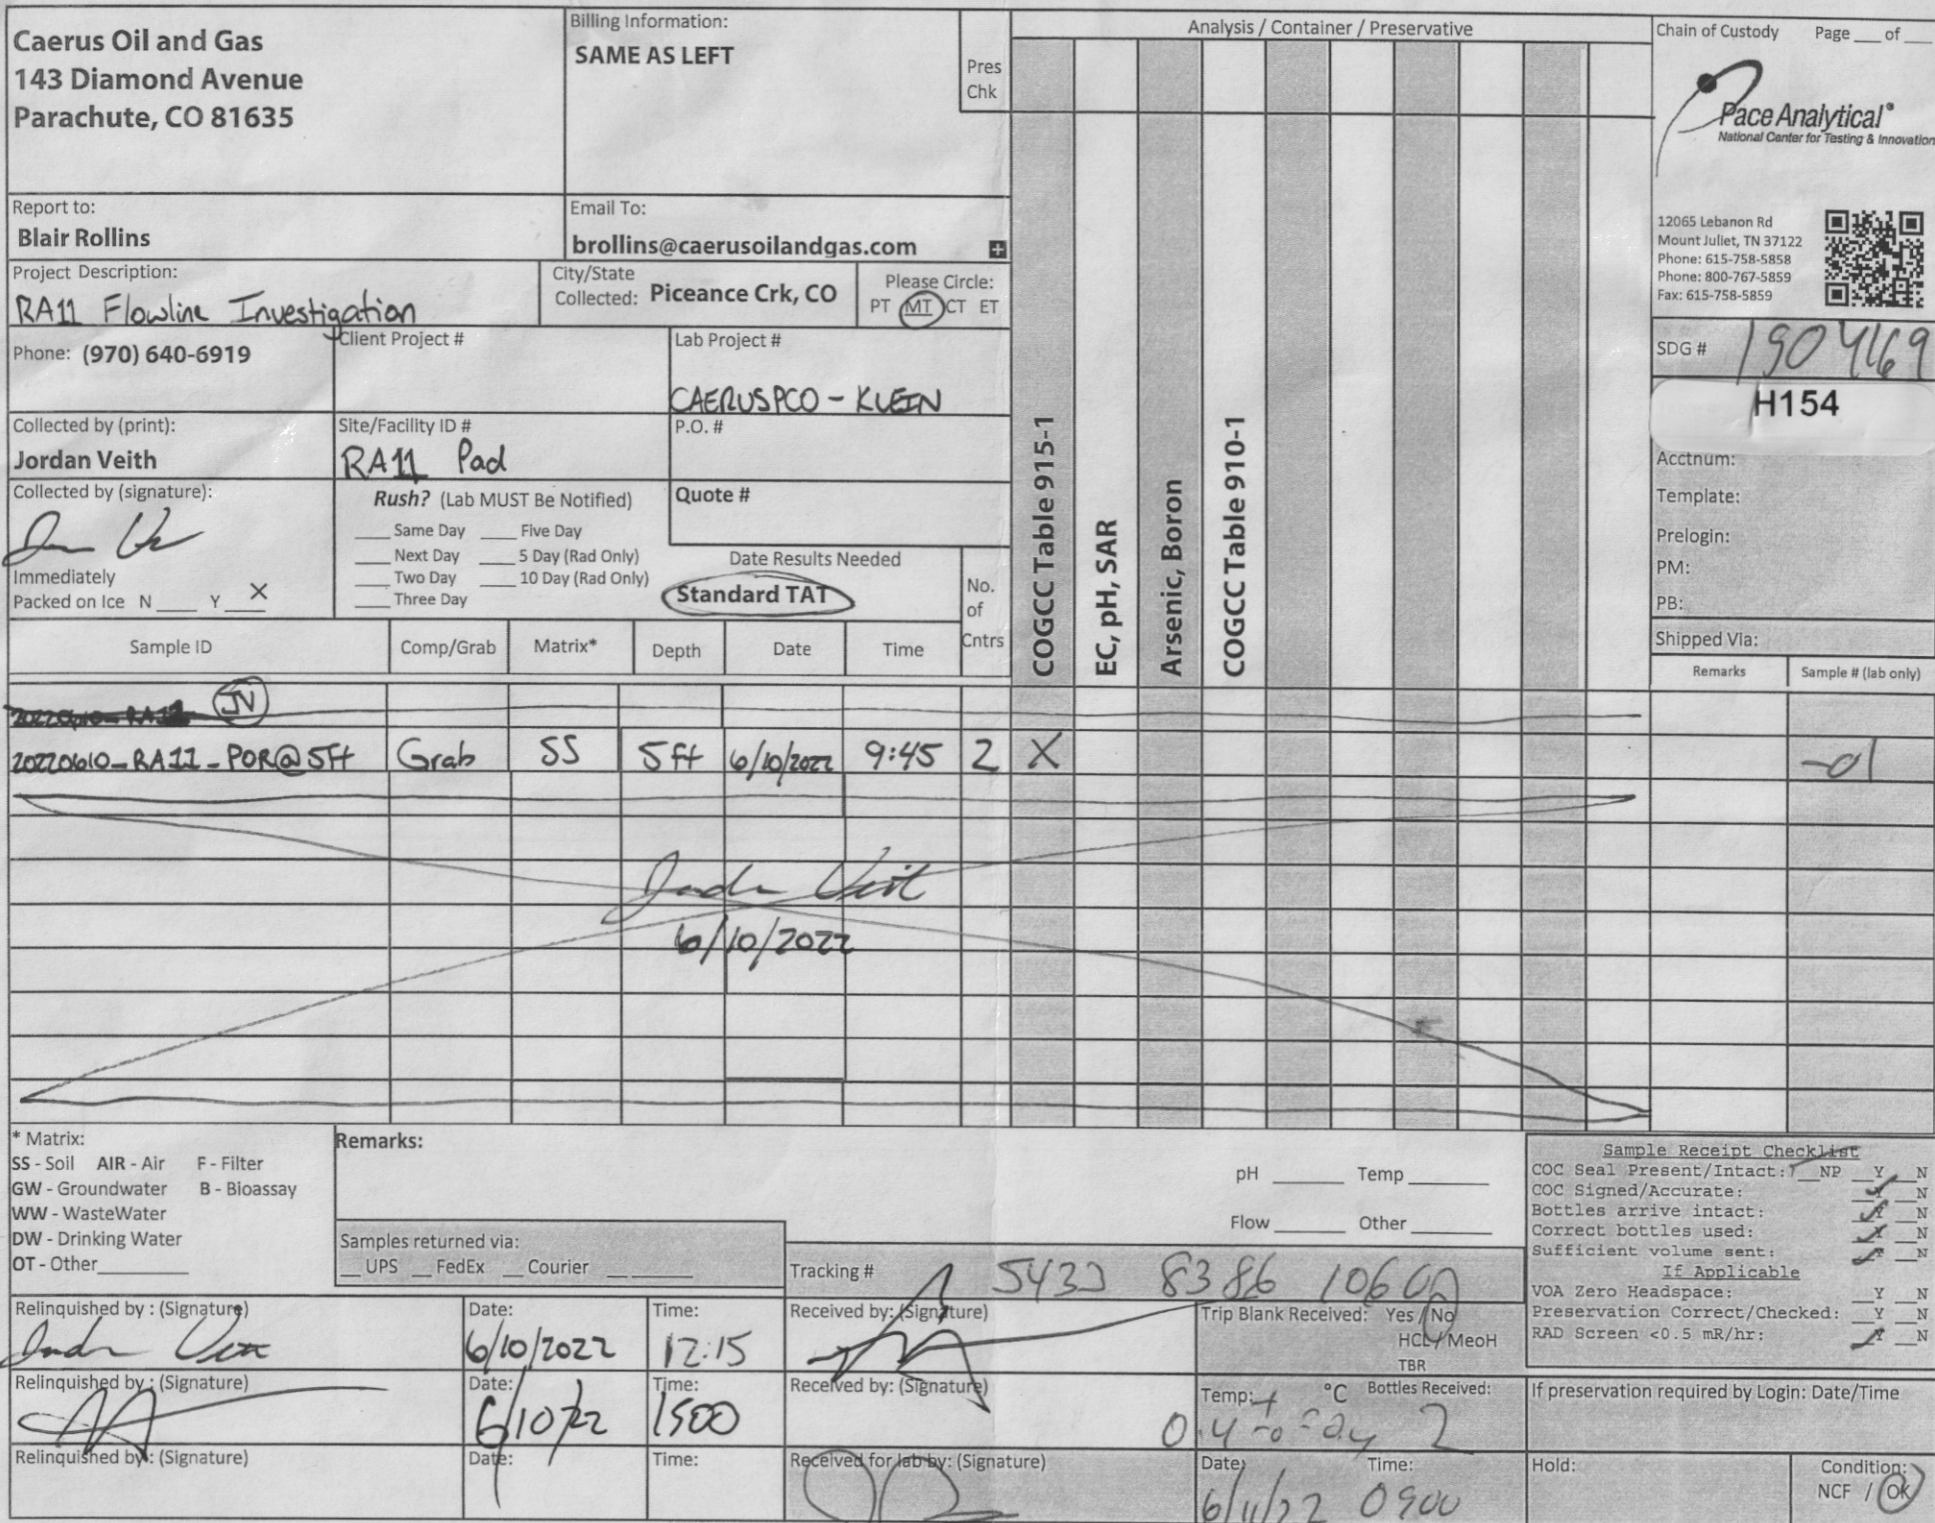 Caerus Oil and Gas
143 Diamond Avenue
Parachute, CO 81635
Billing Information:
SAME AS LEFT
Pres
Chk
Analysis / Container / Preservative
Chain of Custody Page ___ of ___
Pace Analytical®
National Center for Testing & Innovation
12065 Lebanon Rd
Mount Juliet, TN 37122
Phone: 615-758-5858
Phone: 800-767-5859
Fax: 615-758-5859
Report to:
Blair Rollins
Email To:
brollins@caerusoilandgas.com
Project Description:
RA11 Flowline Investigation
City/State
Collected: Piceance Crk, CO
Please Circle:
PT MT CT ET
Phone: (970) 640-6919
Client Project #
Lab Project #
CAERUSPCO - KLEIN
SDG #
H154
Collected by (print):
Jordan Veith
Site/Facility ID #
RA11 Pad
P.O. #
Collected by (signature):
Rush? (Lab MUST Be Notified)
___ Same Day ___ Five Day
___ Next Day ___ 5 Day (Rad Only)
___ Two Day ___ 10 Day (Rad Only)
___ Three Day
Quote #
Date Results Needed
Standard TAT
Immediately
Packed on Ice N ___ Y ___ X
No.
of
Cntrs
COGCC Table 915-1
EC, pH, SAR
Arsenic, Boron
COGCC Table 910-1
Acctnum:
Template:
Prelogin:
PM:
PB:
Shipped Via:
Sample ID
Comp/Grab
Matrix*
Depth
Date
Time
Remarks
Sample # (lab only)
20220610_RA11 JV
20220610_RA11_POR@5ft Grab SS 5ft 6/10/2022 9:45 2 X -01
6/10/2022
* Matrix:
SS - Soil AIR - Air F - Filter
GW - Groundwater B - Bioassay
WW - WasteWater
DW - Drinking Water
OT - Other
Remarks:
pH ___ Temp ___
Flow ___ Other ___
Samples returned via:
__ UPS __ FedEx __ Courier
Tracking #
Sample Receipt Checklist
COC Seal Present/Intact: __NP __Y __N
COC Signed/Accurate: __Y __N
Bottles arrive intact: __Y __N
Correct bottles used: __Y __N
Sufficient volume sent: __Y __N
If Applicable
VOA Zero Headspace: __Y __N
Preservation Correct/Checked: __Y __N
RAD Screen <0.5 mR/hr: __Y __N
Relinquished by : (Signature)
Date:
6/10/2022
Time:
12:15
Received by: (Signature)
Trip Blank Received: Yes / No
HCL / MeoH
TBR
Relinquished by : (Signature)
Date:
6/10/22
Time:
1500
Received by: (Signature)
Temp: °C Bottles Received:
2
If preservation required by Login: Date/Time
Relinquished by : (Signature)
Date:
Time:
Received for lab by: (Signature)
Date:
6/11/22
Time:
0900
Hold:
Condition:
NCF / OK